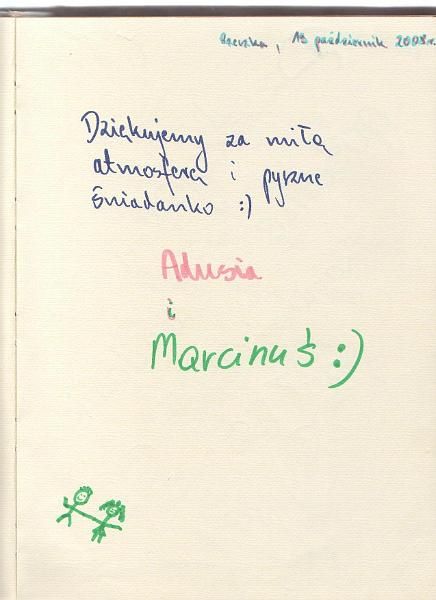 Rzeczka, 13 październik 2008r.
Dziękujemy za miłą
atmosferę i pyszne
śniadanko :)
Adusia
i
Marcinuś :)